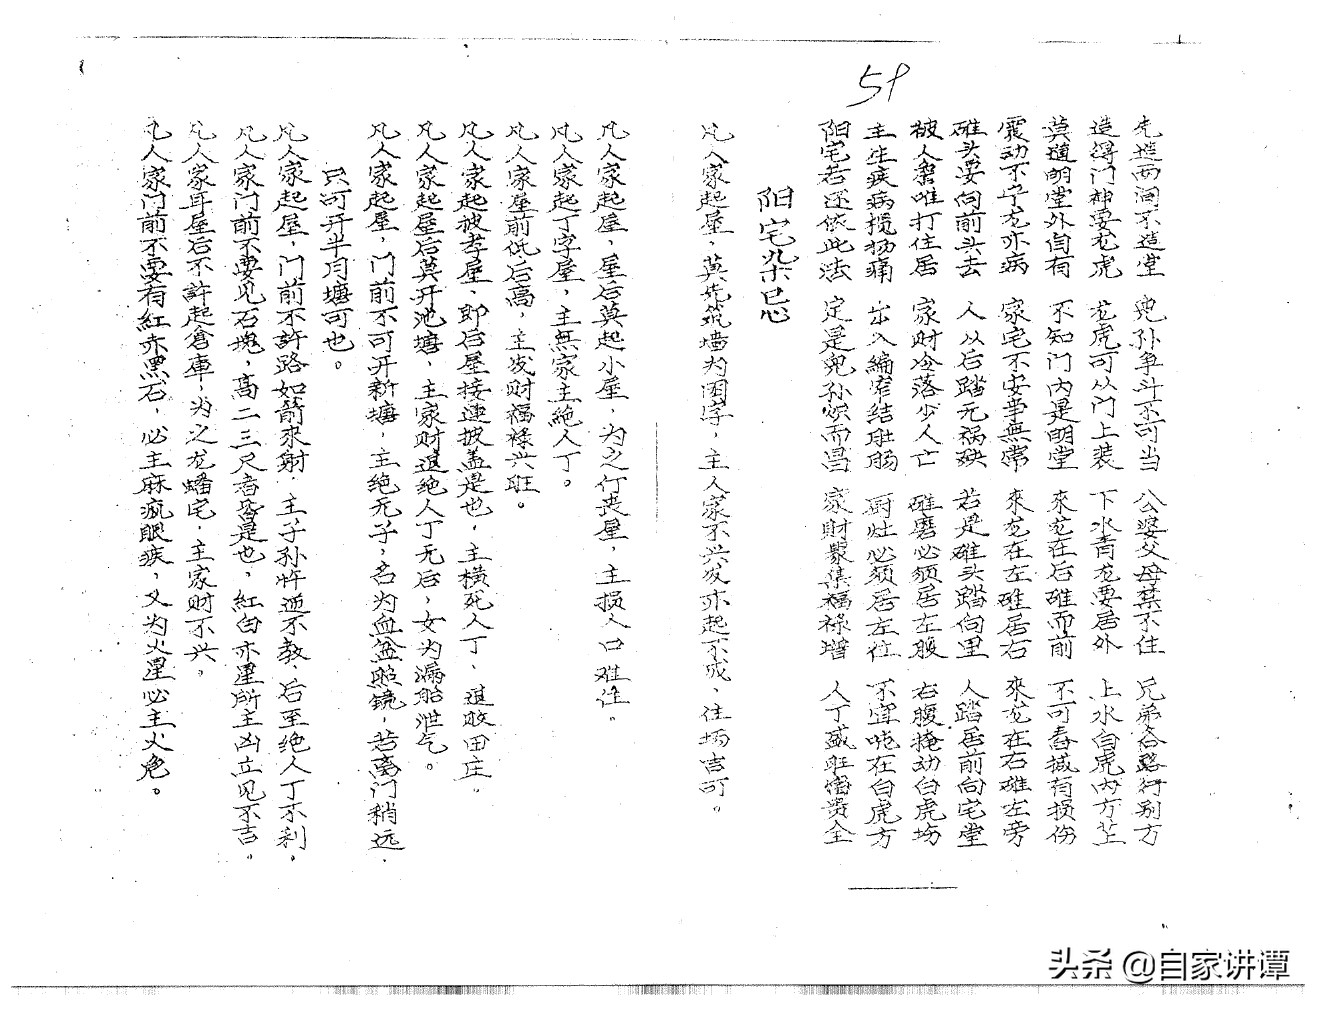 59
先造两洞不造堂 兒孙车斗不可当 公婆父母禁不住 兄弟各路行别方
造得门神要龙虎 龙虎可从门上装 下水青龙要居外 上水白虎内方
莫道明堂外自有 不知门内是明堂 來龙在后碓而前 不可舂搣有损伤
震动不宁龙亦病 家宅不安事無常 來龙在左碓居右 來龙在右碓左旁
碓头要向前头去 人从后踏无祸殃 若是碓头踏向里 人踏居前向宅堂
被人唯打住居 家财冷落少人亡 碓磨必须居左腹 右腹掩动白虎坊
主生疾病揽扬痛 出入编窄结肚肠 厨灶必须居左位 不宜吨在白虎方
阳宅若还依此法 定是兒孙炽而昌 家財聚集福禄增 人丁盛旺富贵全
阳宅杂忌
凡人家起屋，莫先筑墙为困字，主人家不兴发亦起不成，住场吉可。
凡人家起屋，屋后莫起小屋，为之停丧屋，主损人口难住。
凡人家起丁字屋，主無家主絶人丁。
凡人家屋前低后高，主发财福禄兴旺。
凡人家起披孝屋，即后屋接連披盖是也，主横死人丁、退败田庄。
凡人家起屋后莫开池塘，主家财退绝人丁无后，女为漏胎泄气。
凡人家起屋，门前不可开新塘，主绝无子，名为血盆照镜，若离门稍远，
只可开半月塘可也。
凡人家起屋，门前不許路如箭來射，主子孙忤逆不教，后至绝人丁不利。
凡人家门前不要见石塊，高二三尺者是也，紅白亦犀所主凶立见不吉。
凡人家耳屋后不許起倉庫，为之龙蟠宅，主家财不兴。
凡人家门前不要有紅赤黑石，必主麻疯眼疾，又为火星必主火危。
头条 @自家讲谭